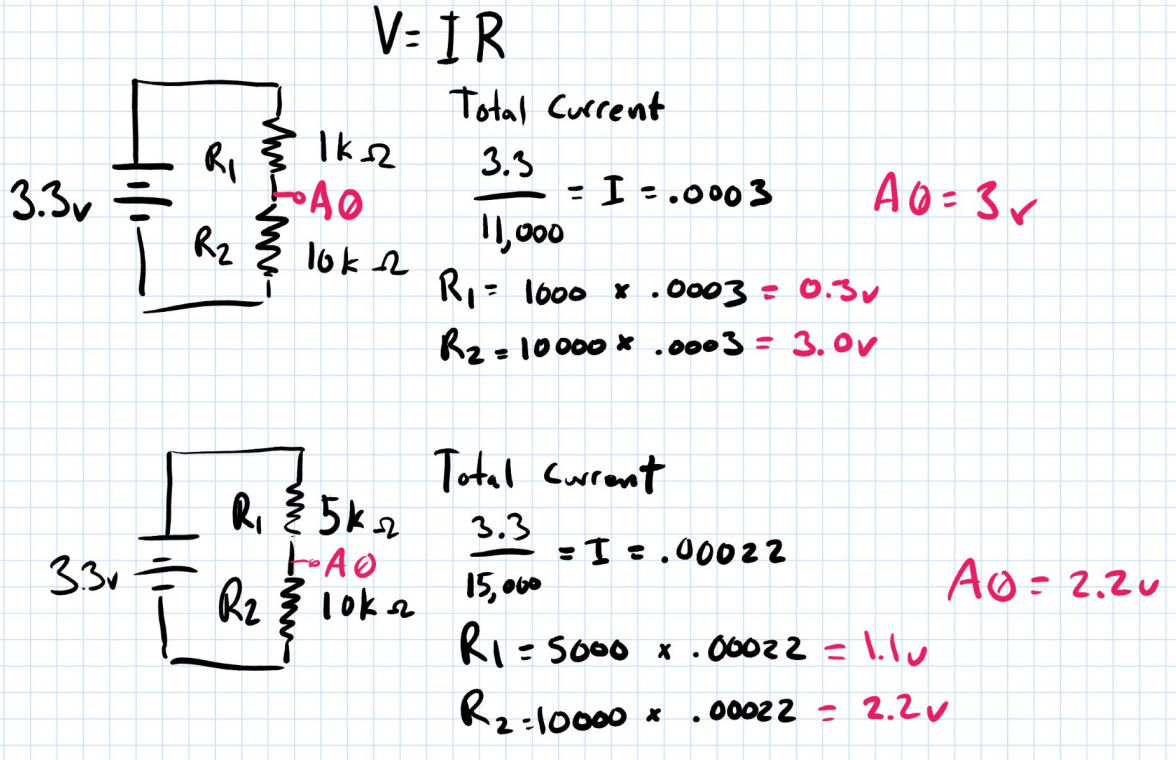 V = I R
3.3v
R1
1k Ω
A0
R2
10k Ω
Total Current
3.3
11,000
= I = .0003
R1 = 1000 x .0003 = 0.3v
R2 = 10000 x .0003 = 3.0v
A0 = 3v
3.3v
R1
5k Ω
A0
R2
10k Ω
Total Current
3.3
15,000
= I = .00022
R1 = 5000 x .00022 = 1.1v
R2 = 10000 x .00022 = 2.2v
A0 = 2.2v